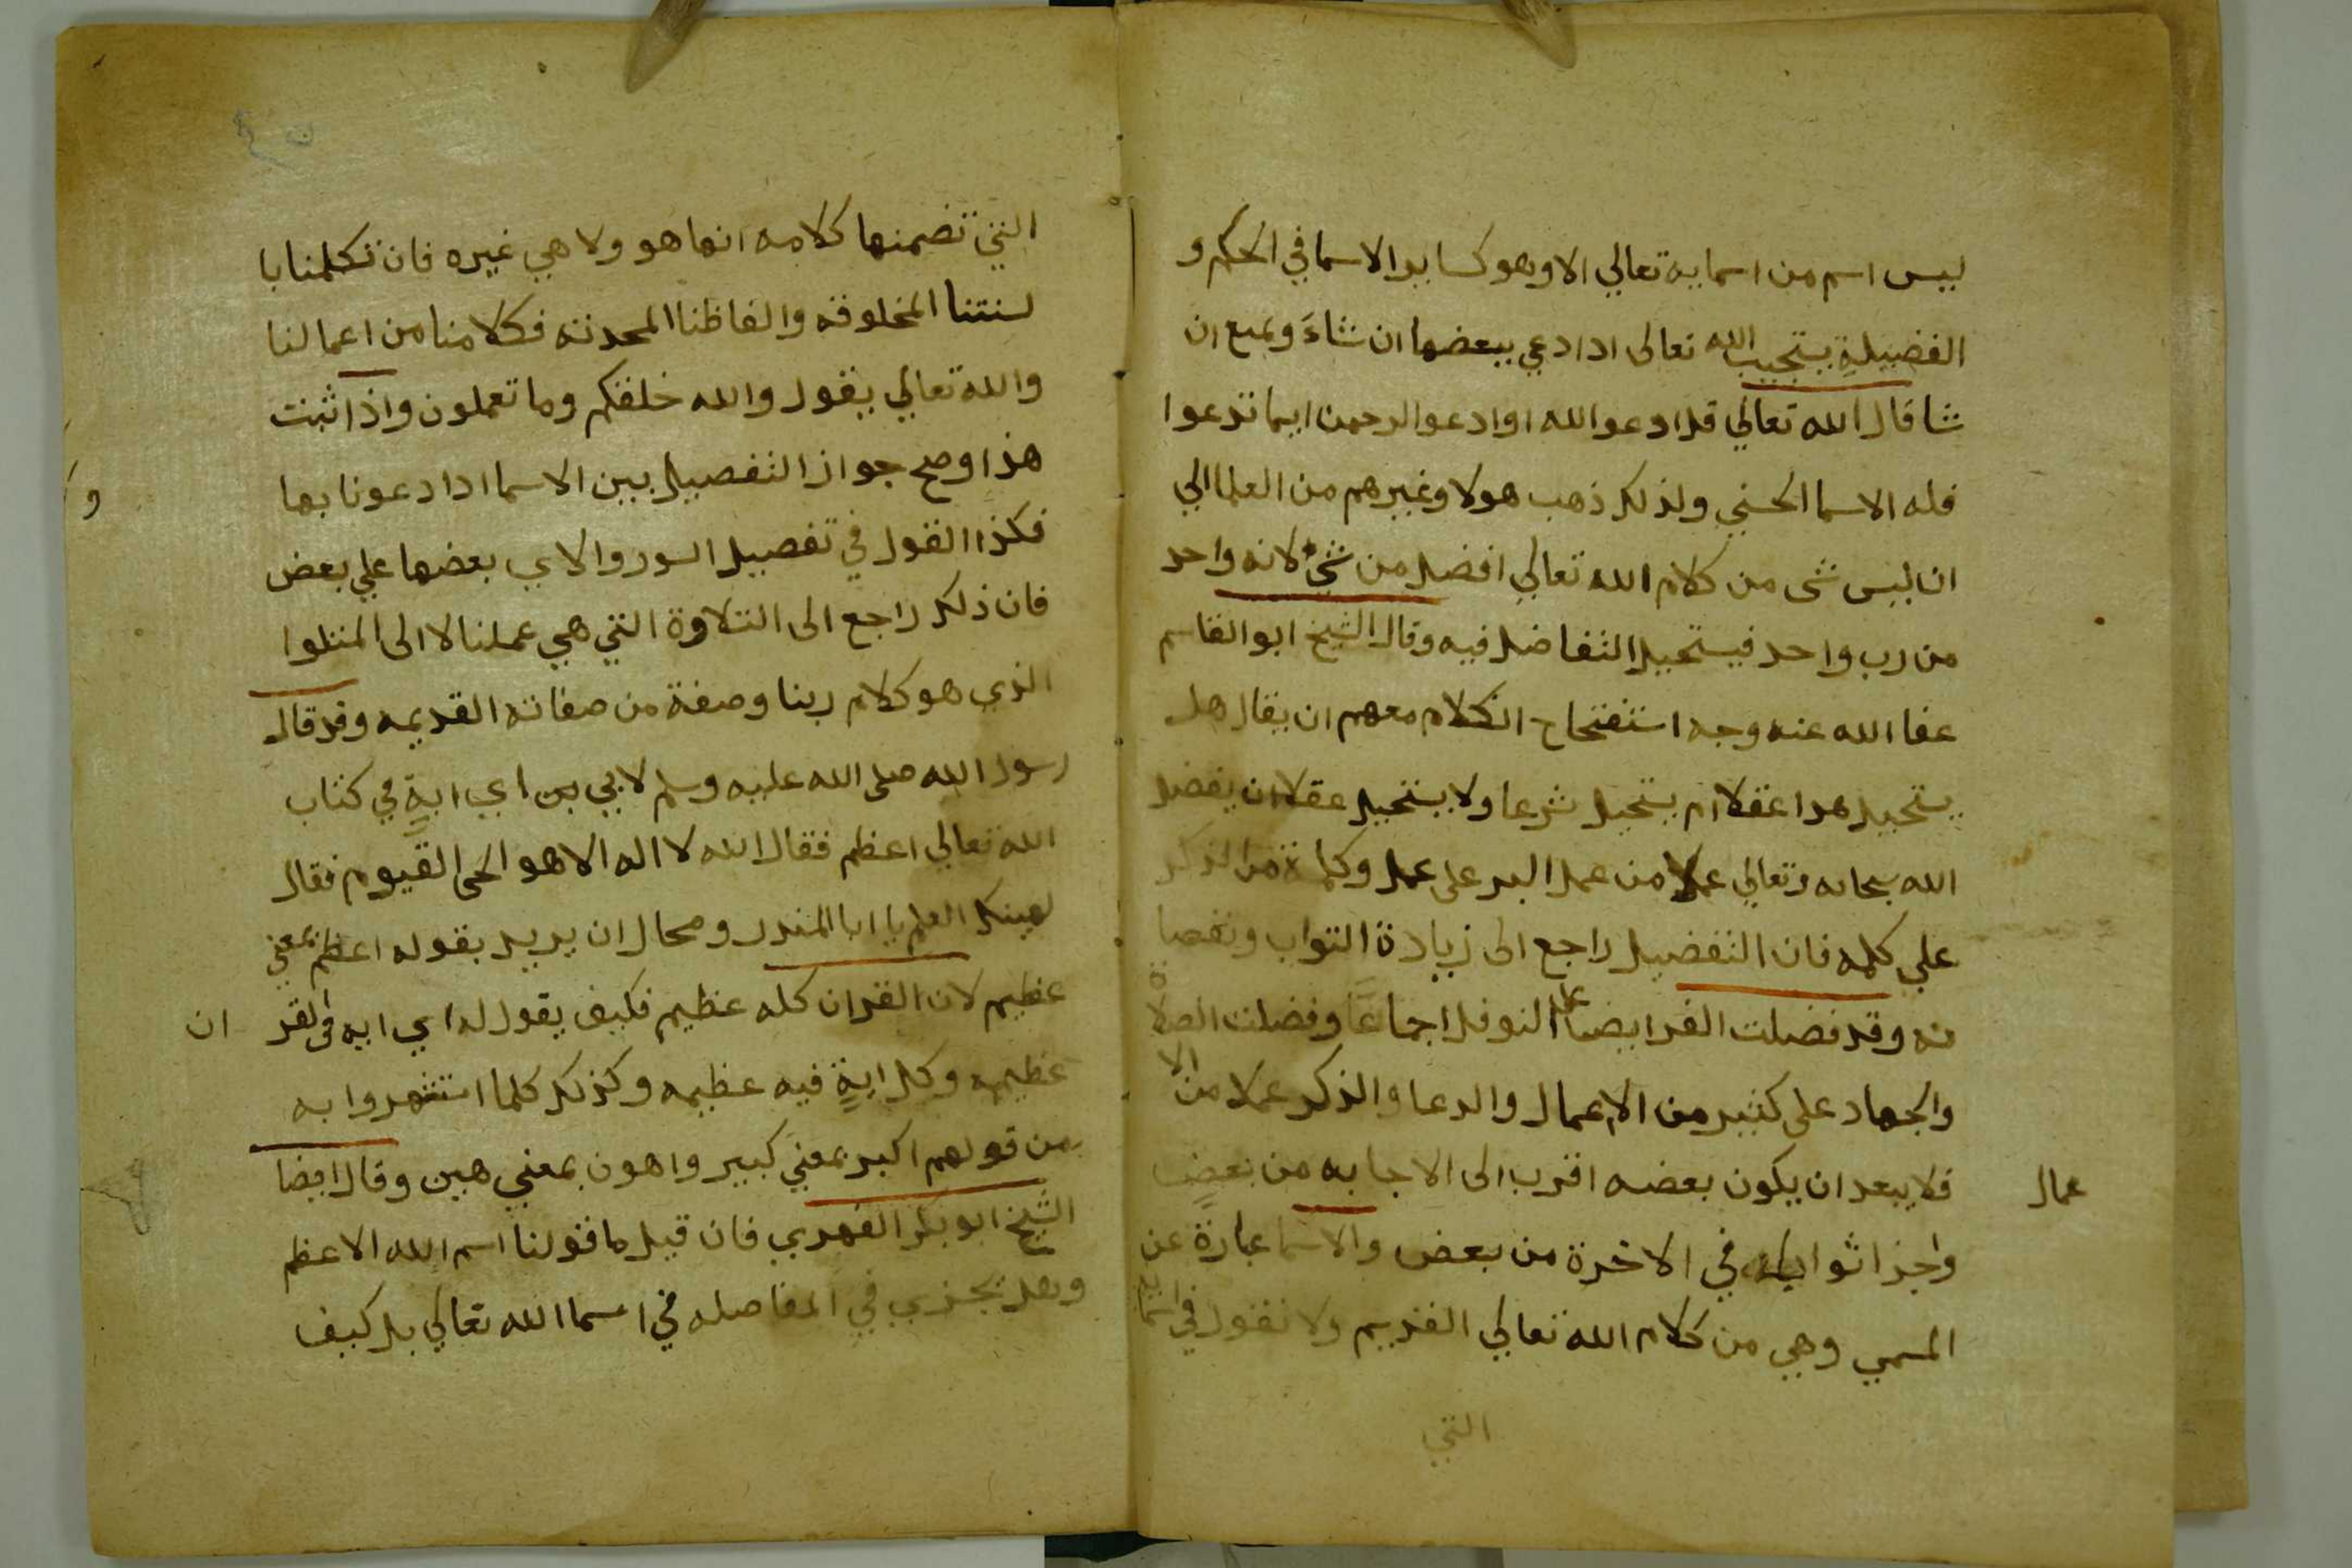 ليس اسم من اسمايه تعالي الا وهو كساير الاسما في الحكم و
الفضيلة يستجيب الله تعالى ادا دعي ببعضها ان شاء ويمنع ان
شا قال الله تعالي قل ادعوا الله او ادعوا الرحمن ايما تدعوا
فله الاسما الحسني ولذلك ذهب هولا وغيرهم من العلما الي
ان ليس شى من كلام الله تعالي افضل من شيء لانه واحد
من رب واحد فيستحيل التفاضل فيه وقال الشيخ ابو القاسم
عفا الله عنه وجه استفتاح الكلام معهم ان يقال هل
يستحيل هدا عقلا ام يستحيل شرعا ولا يستحيل عقلا ان يفضل
الله سبحانه وتعالي عملا من عمل البر على عمل وكلمة من الذكر
علي كلمه فان التفضيل راجع الى زيادة التواب ونقصا
نه وقد فضلت الفرايض على النوفل اجماعا وفضلت الصلاة
والجهاد على كثير من الاعمال والدعا والذكر عملا من الا
عمال
فلا يبعد ان يكون بعضه اقرب الى الاجابه من بعض
واجزا ثوابا في الاخرة من بعض والاسما عبارة عن
المسمي وهي من كلام الله تعالي القديم ولا نقول في اسمايه
التي
التي تضمنها كلامه انها هو ولا هي غيره فان تكلمنا با
لسنتنا المخلوقه والفاظنا المحدثه فكلامنا من اعمالنا
والله تعالي يقول والله خلقكم وما تعملون واذا ثبت
هذا وصح جواز التفصيل بين الاسما ادا دعونا بها
و
فكذا القول في تفصيل السور والاي بعضها علي بعض
فان ذلك راجع الى التلاوة التي هي عملنا لا الى المتلوا
الذي هو كلام ربنا وصفة من صفاته القديمه وقد قال
رسول الله صلى الله عليه وسلم لابي بن اي اية في كتاب
الله تعالي اعظم فقال الله لا اله الا هو الحى القيوم فقال
لهينك العلم يا ابا المندر ومحال ان يريد بقوله اعظم بمعني
عظيم لان القران كله عظيم فكيف يقول له اي ايه في القر ان
عظيمه وكل اية فيه عظيمه وكذلك كلما استشهدوا به
من قولهم اكبر بمعني كبير واهون بمعني هين وقال ايضا
الشيخ ابو بكر الفهري فان قيل ما قولنا اسم الله الاعظم
وهل تجري في المفاصله في اسما الله تعالي بل كيف